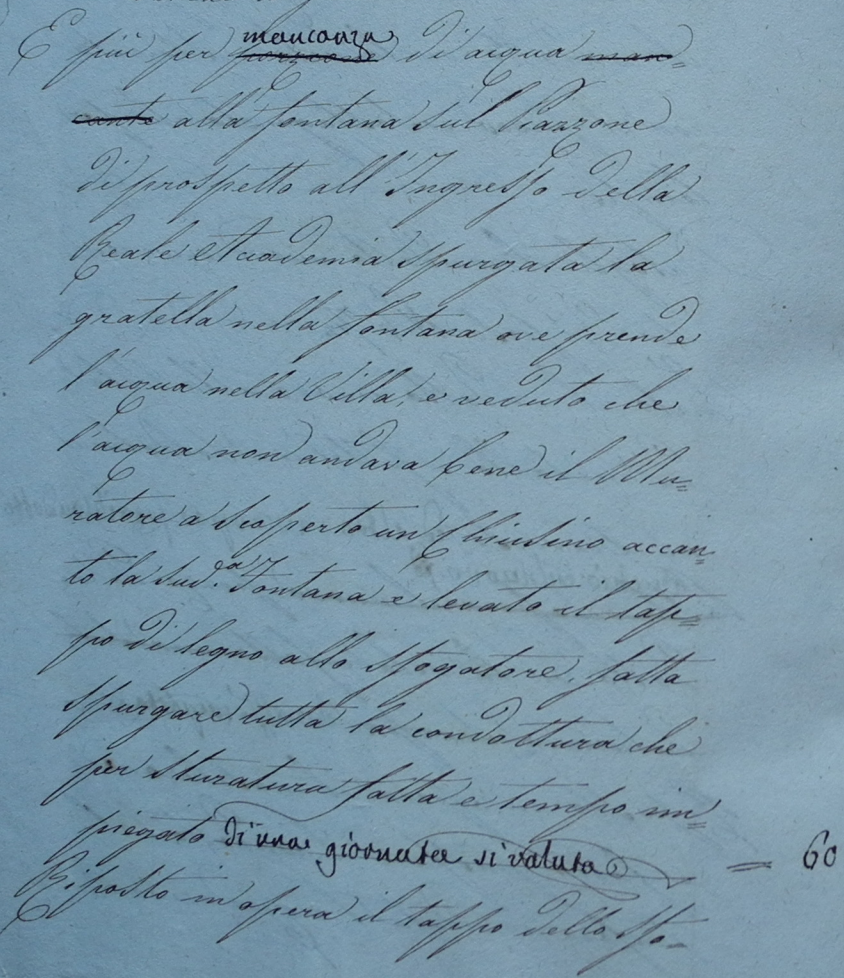 mancanza
E più per di acqua man=
cante alla fontana sul Piazzone
di prospetto all'Ingresso della
Reale Accademia spurgata la
gratella nella fontana ove prende
l'acqua nella Villa, e veduto che
l'acqua non andava bene il Mu=
ratore a scoperto un Chiusino accan=
to la sud.a Fontana e levato il tap=
po di legno allo sfogatore, fatta
spurgare tutta la condottura che
per sturatura fatta e tempo im=
piegato di una giornata si valuta = 60
Riposto in opera il tappo dello sfo=